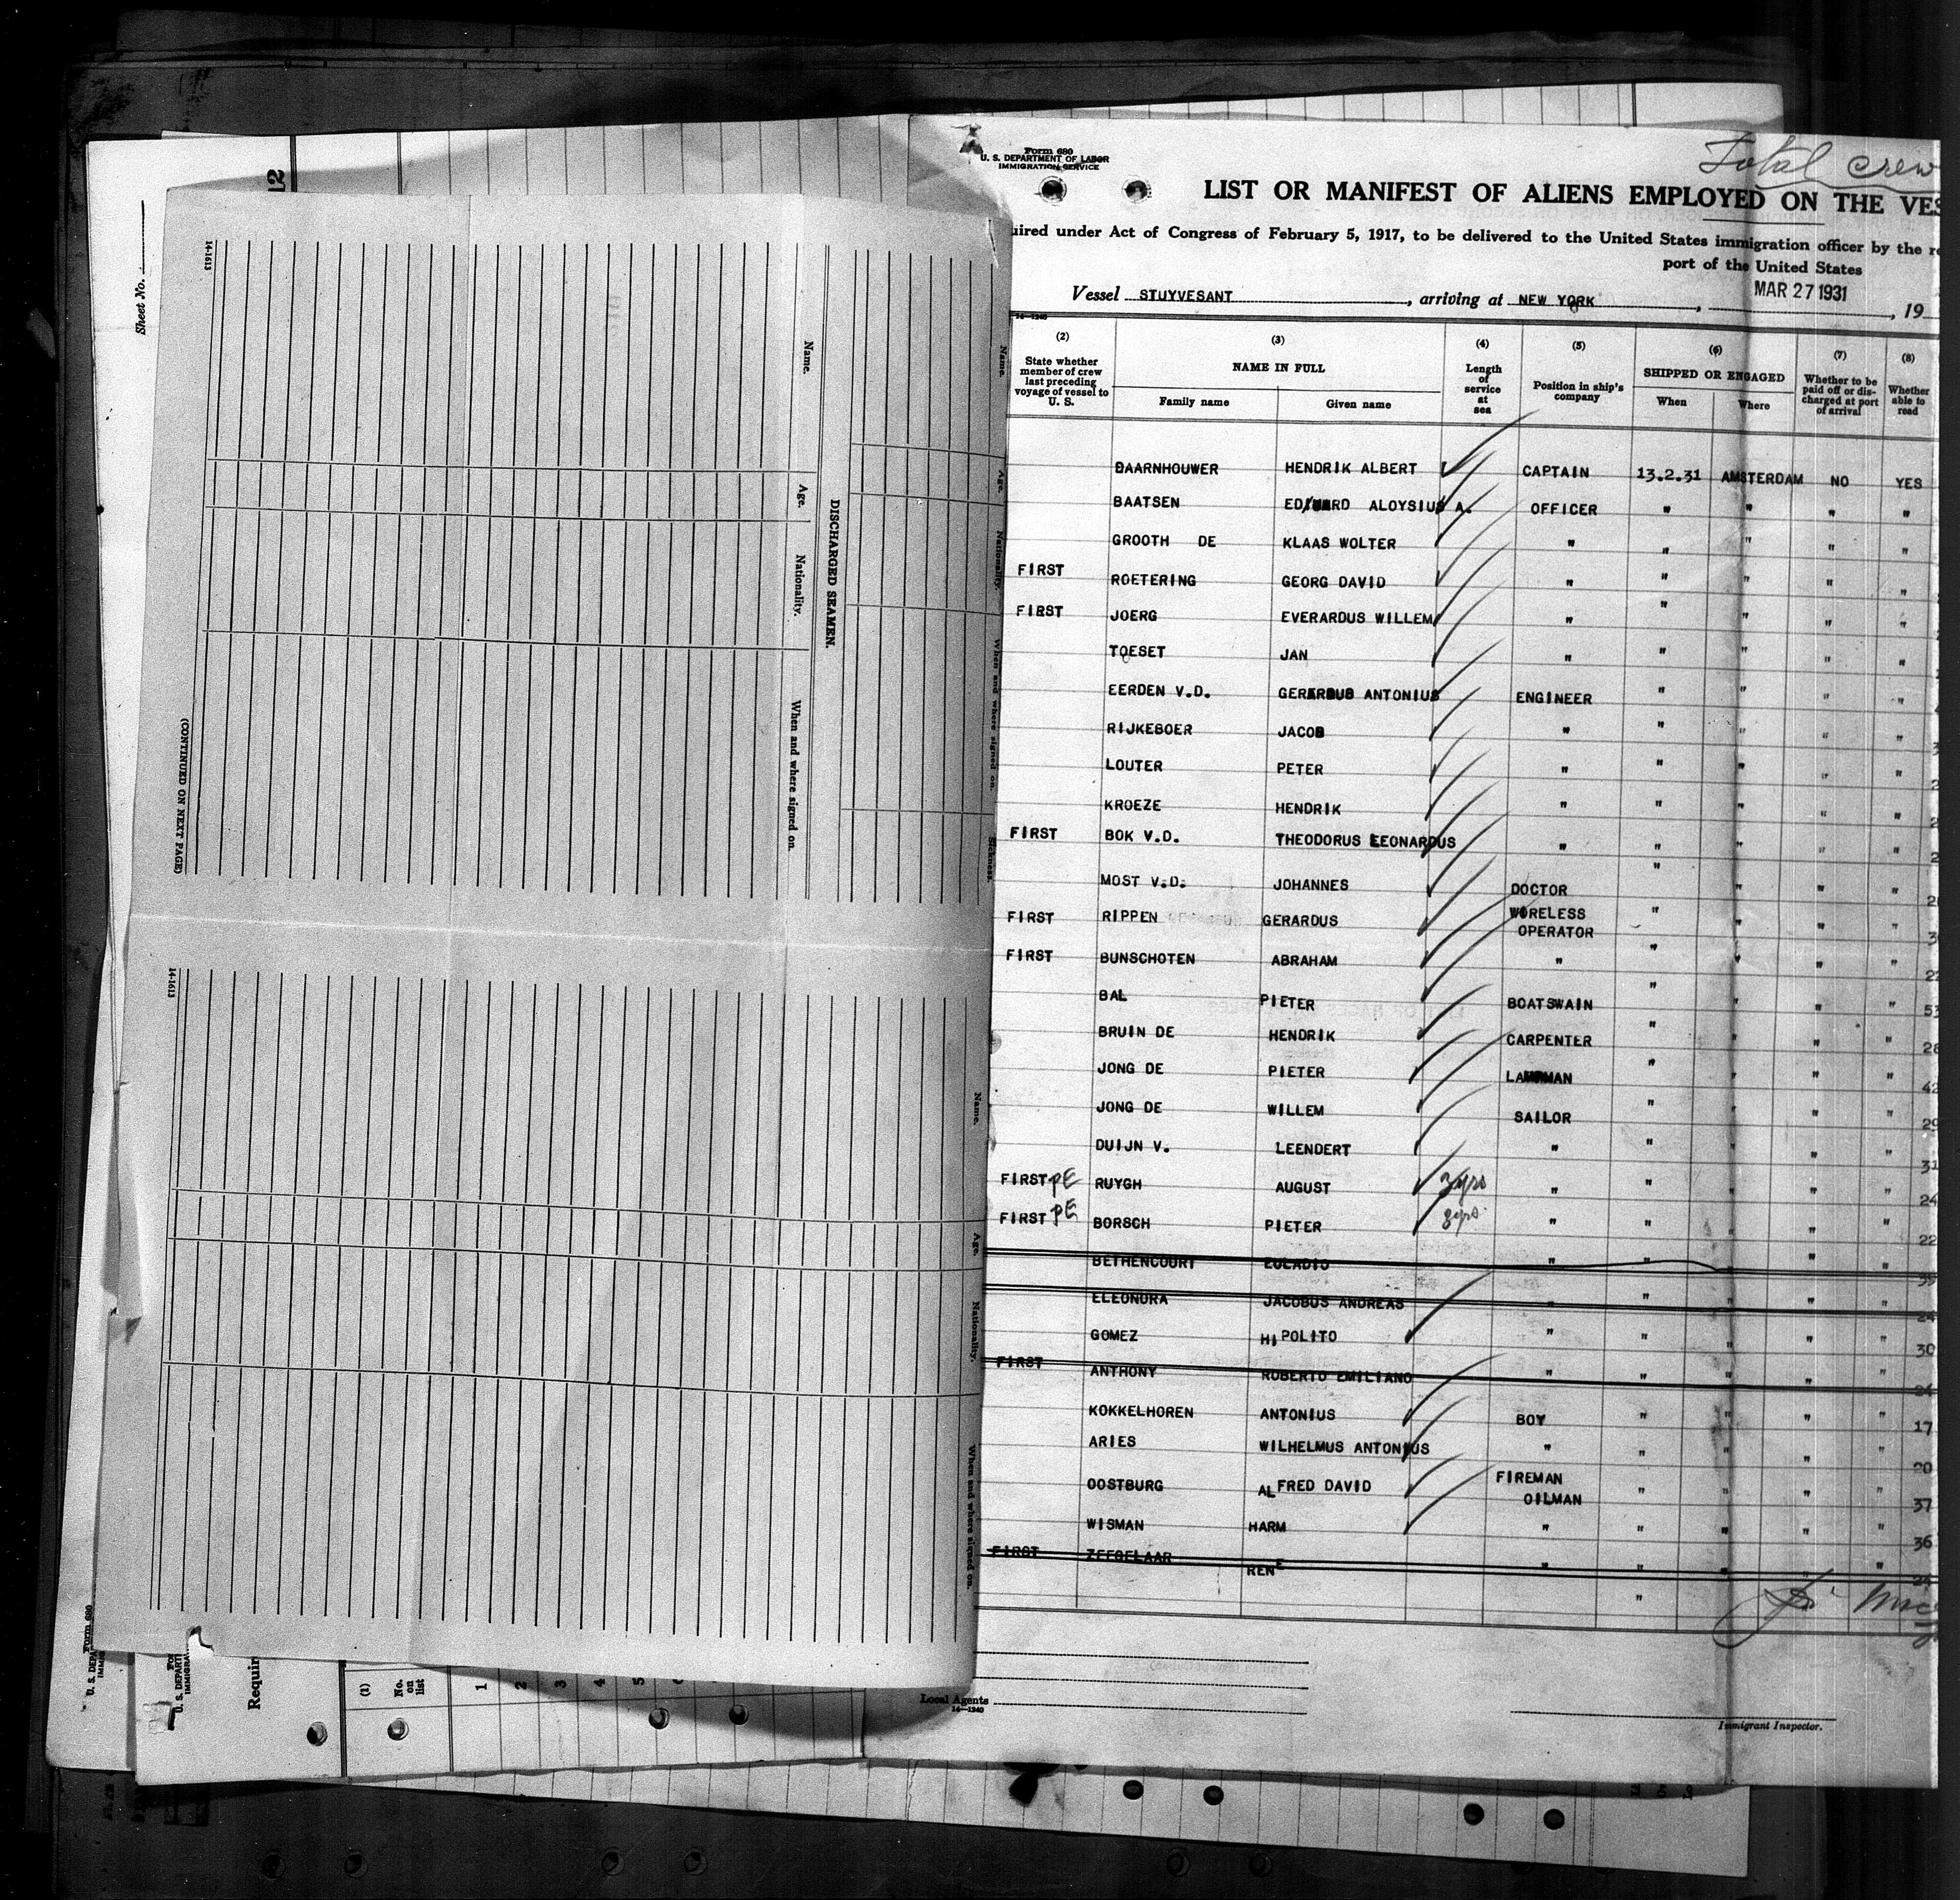 Sheet No.
12
14-1613
Name.
Age.
Nationality.
When and where signed on.
DISCHARGED SEAMEN.
(CONTINUED ON NEXT PAGE)
Name.
Age.
Nationality.
When and where signed on.
Sickness.
14-1613
Name.
Age.
Nationality.
When and where signed on.
Form 680
U. S. DEPA
U. S. DEPARTM
IMMIGRA
Requir
(1)
No. on list
1
2
3
4
5
Form 680
U. S. DEPARTMENT OF LABOR
IMMIGRATION SERVICE
Total crew
LIST OR MANIFEST OF ALIENS EMPLOYED ON THE VES
uired under Act of Congress of February 5, 1917, to be delivered to the United States immigration officer by the re
port of the United States
MAR 27 1931
Vessel STUYVESANT, arriving at NEW YORK, , 19
14-1240
(2) (3) (4) (5) (6) (7) (8)
State whether member of crew last preceding voyage of vessel to U. S. NAME IN FULL Length of service at sea Position in ship's company SHIPPED OR ENGAGED Whether to be paid off or discharged at port of arrival Whether able to read
Family name Given name When Where
BAARNHOUWER HENDRIK ALBERT CAPTAIN 13.2.31 AMSTERDAM NO YES
BAATSEN EDWARD ALOYSIUS A. OFFICER " " " "
GROOTH DE KLAAS WOLTER " " " " "
FIRST ROETERING GEORG DAVID " " " " "
FIRST JOERG EVERARDUS WILLEM " " " " "
TOESET JAN " " " " "
EERDEN V.D. GERARDUS ANTONIUS ENGINEER " " " "
RIJKEBOER JACOB " " " " "
LOUTER PETER " " " " "
KROEZE HENDRIK " " " " "
FIRST BOK V.D. THEODORUS LEONARDUS " " " " "
MOST V.D. JOHANNES DOCTOR " " " "
FIRST RIPPEN GERARDUS WIRELESS OPERATOR " " " "
FIRST BUNSCHOTEN ABRAHAM " " " " "
BAL PIETER BOATSWAIN " " " " 53
BRUIN DE HENDRIK CARPENTER " " " " 28
JONG DE PIETER LAMPMAN " " " " 42
JONG DE WILLEM SAILOR " " " " 29
DUIJN V. LEENDERT " " " " " 31
FIRST PE RUYGH AUGUST 3 yrs " " " " " 24
FIRST PE BORSCH PIETER 8 yrs. " " " " " 22
BETHENCOURT EULADIO " " " " "
ELEONORA JACOBUS ANDREAS " " " " " 24
GOMEZ HIPOLITO " " " " " 30
FIRST ANTHONY ROBERTO EMILIANO " " " " "
KOKKELHOREN ANTONIUS BOY " " " " 17
ARIES WILHELMUS ANTONIUS " " " " " 20
OOSTBURG ALFRED DAVID FIREMAN OILMAN " " " " 37
WISMAN HARM " " " " " 36
FIRST ZEEGELAAR RENE " " " " "
"
Local Agents
14-1240
Immigrant Inspector.